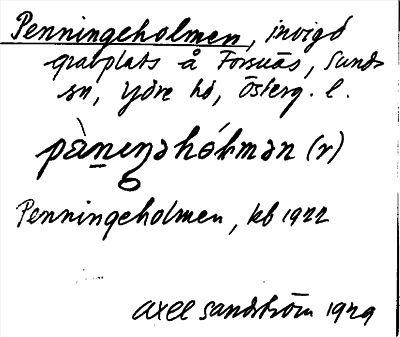 Penningeholmen, invigd
gravplats å Forsnäs, Sunds
sn, Ydre hd, Österg. l.
pàneŋəhólmən (r)
Penningeholmen, kb 1922
Axel Sandström 1929